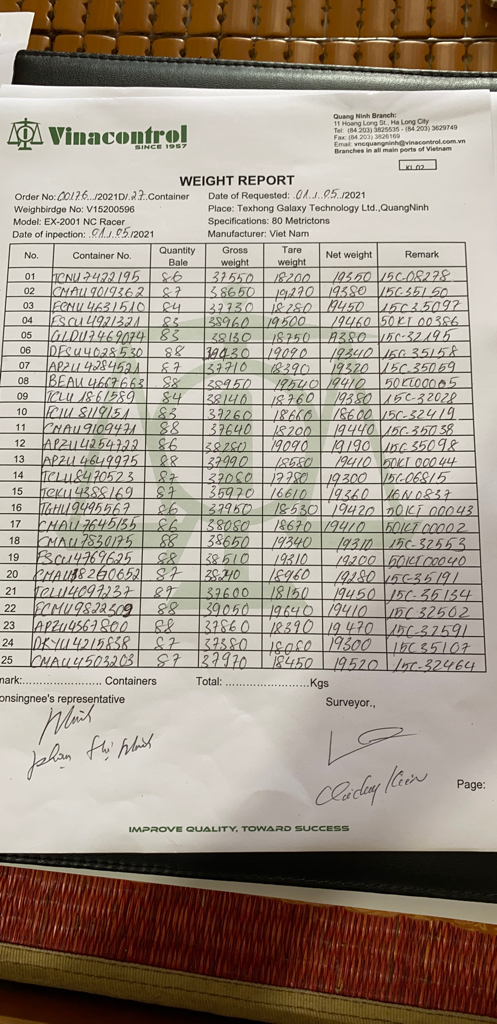 Vinacontrol
SINCE 1957
Quang Ninh Branch:
11 Hoang Long St., Ha Long City
Tel: (84.203) 3825535 - (84.203) 3629749
Fax: (84.203) 3826169
Email: vncquangninh@vinacontrol.com.vn
Branches in all main ports of Vietnam
KL 02
WEIGHT REPORT
Order No: 00176 /2021D/ 27 Container Date of Requested: 01 / 05 /2021
Weighbirdge No: V15200596 Place: Texhong Galaxy Technology Ltd.,QuangNinh
Model: EX-2001 NC Racer Specifications: 80 Metrictons
Date of inpection: 01 / 05 /2021 Manufacturer: Viet Nam
No. Container No. Quantity Bale Gross weight Tare weight Net weight Remark
01 TCNU7422195 86 37550 18200 19350 15C-08278
02 CMAU9019362 87 38650 19270 19380 15C-35150
03 ECMU4631510 84 37730 18280 19450 15C 35097
04 FSCU4921321 83 38960 19500 19460 50KT 00386
05 GLDU7469074 83 38130 18750 19380 15C-32195
06 DFSU4028530 88 38430 19090 19340 15C 35158
07 APZU4284521 87 37710 18390 19320 15C-35059
08 BEAU4667663 88 38950 19540 19410 50KT00005
09 TCLU1861589 84 38140 18760 19380 15C-32028
10 FCIU8119151 83 37260 18660 18600 15C-32419
11 CMAU9109471 88 37640 18200 19440 15C-35038
12 APZU4254722 86 38280 19090 19190 15C-35098
13 APZU4649975 88 37990 18580 19410 50KT 00044
14 TCLU8470523 87 37080 17780 19300 15C-06815
15 TCKU4388169 87 35970 16610 19360 16N 0837
16 TGHU9495567 86 37950 18530 19420 50KT 00043
17 CMAU7645135 86 38080 18670 19410 50KT 00002
18 CMAU7830175 88 38650 19340 19310 15C-32553
19 FSCU4769625 88 38510 19310 19200 50KT00040
20 CMAU8260652 87 38240 18960 19280 15C-35191
21 TCLU4097237 89 37600 18150 19450 15C-35134
22 ECMU9822309 88 39050 19640 19410 15C-32502
23 APZU4367800 88 37860 18390 19470 15C-32591
24 DRYU4215838 87 37380 18080 19300 15C 35107
25 CMAU4503203 87 37970 18450 19520 15C-32464
mark:........................ Containers Total: ........................Kgs
onsingnee's representative Surveyor.,
Phan Thị Minh
Page:
IMPROVE QUALITY, TOWARD SUCCESS